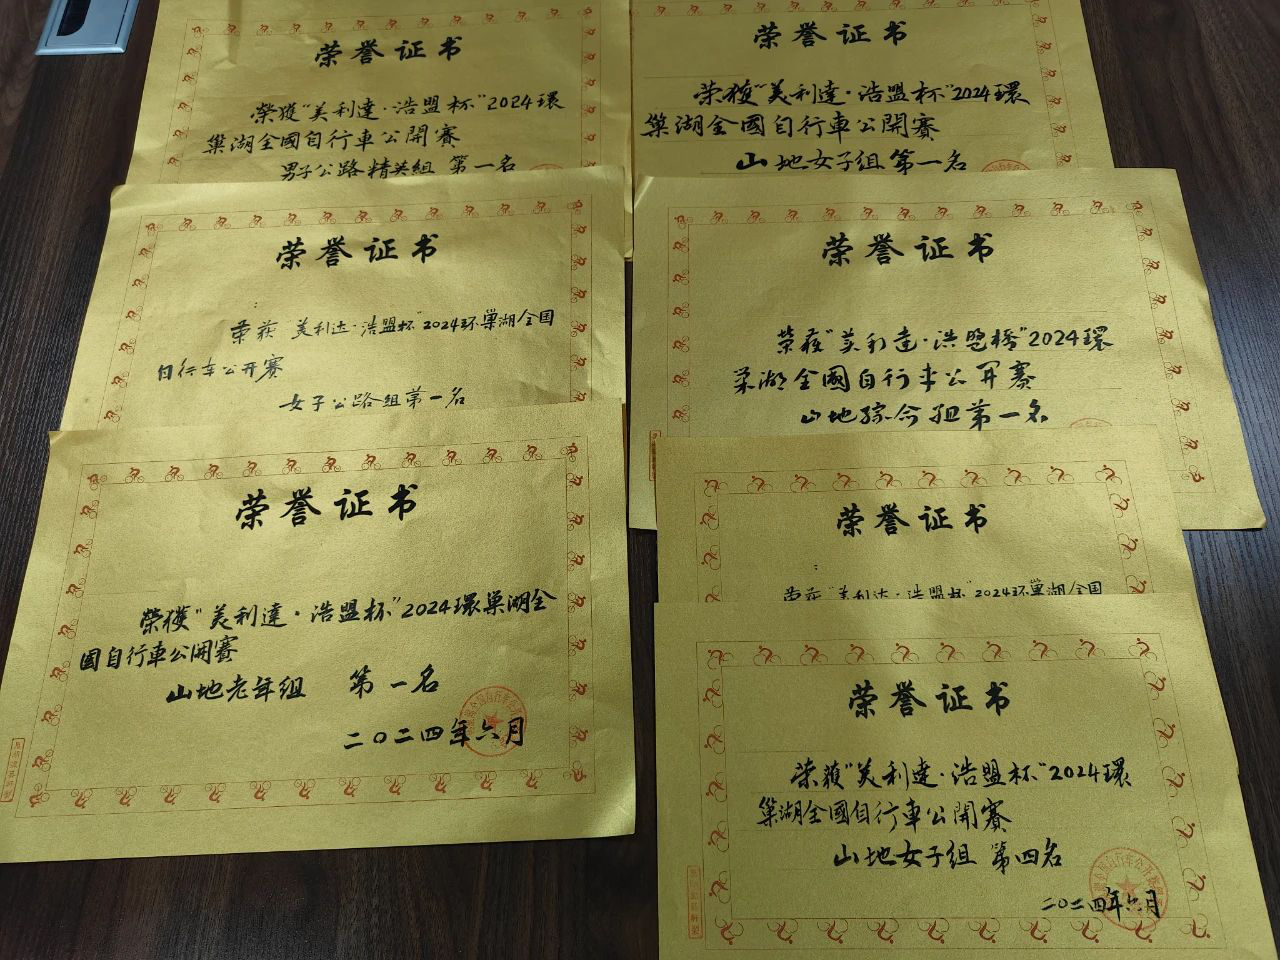 荣誉证书
榮獲"美利達·浩盟杯"2024環
巢湖全國自行車公開賽
男子公路精英组 第一名
荣誉证书
荣獲"美利達·浩盟杯"2024環
巢湖全國自行車公開賽
山地女子组 第一名
荣誉证书
荣获 美利达·浩盟杯"2024环巢湖全国
自行车公开赛
女子公路组第一名
荣誉证书
荣获"美利達·浩盟杯"2024環
巢湖全國自行車公開賽
山地综合组第一名
荣誉证书
榮獲"美利達·浩盟杯"2024環巢湖全
國自行車公開賽
山地老年组 第一名
二〇二四年六月
荣誉证书
荣获"美利达·浩盟杯"2024环巢湖全国
荣誉证书
荣獲"美利達·浩盟杯"2024環
巢湖全國自行車公開賽
山地女子组 第四名
二〇二四年六月